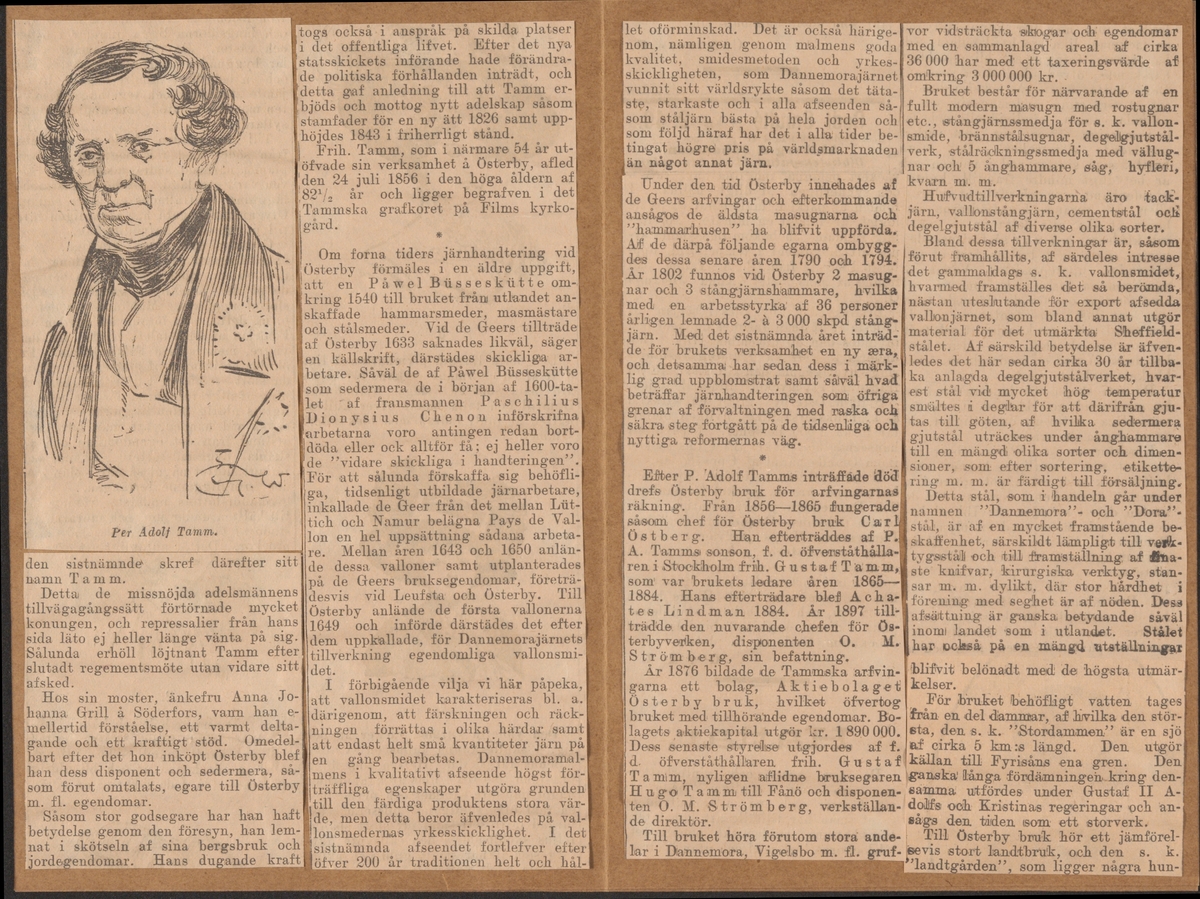 Per Adolf Tamm.
den sistnämnde skref därefter sitt
namn Tamm.
Detta de missnöjda adelsmännens
tillvägagångssätt förtörnade mycket
konungen, och repressalier från hans
sida läto ej heller länge vänta på sig.
Sålunda erhöll löjtnant Tamm efter
slutadt regementsmöte utan vidare sitt
afsked.
Hos sin moster, änkefru Anna Jo-
hanna Grill å Söderfors, vann han e-
mellertid förståelse, ett varmt delta-
gande och ett kraftigt stöd. Omedel-
bart efter det hon inköpt Österby blef
han dess disponent och sedermera, så-
som förut omtalats, egare till Österby
m. fl. egendomar.
Såsom stor godsegare har han haft
betydelse genom den föresyn, han lem-
nat i skötseln af sina bergsbruk och
jordegendomar. Hans dugande kraft
togs också i anspråk på skilda platser
i det offentliga lifvet. Efter det nya
statsskickets införande hade förändra-
de politiska förhållanden inträdt, och
detta gaf anledning till att Tamm er-
bjöds och mottog nytt adelskap såsom
stamfader för en ny ätt 1826 samt upp-
höjdes 1843 i friherrligt stånd.
Frih. Tamm, som i närmare 54 år ut-
öfvade sin verksamhet å Österby, afled
den 24 juli 1856 i den höga åldern af
82½ år och ligger begrafven i det
Tammska grafkoret på Films kyrko-
gård.
*
Om forna tiders järnhandtering vid
Österby förmäles i en äldre uppgift,
att en Påwel Büsseskütte om-
kring 1540 till bruket från utlandet an-
skaffade hammarsmeder, masmästare
och stålsmeder. Vid de Geers tillträde
af Österby 1633 saknades likväl, säger
en källskrift, därstädes skickliga ar-
betare. Såväl de af Påwel Büsseskütte
som sedermera de i början af 1600-ta-
let af fransmannen Paschilius
Dionysius Chenon införskrifna
arbetarna voro antingen redan bort-
döda eller ock alltför få; ej heller voro
de "vidare skickliga i handteringen".
För att sålunda förskaffa sig behöfli-
ga, tidsenligt utbildade järnarbetare,
inkallade de Geer från det mellan Lüt-
tich och Namur belägna Pays de Val-
lon en hel uppsättning sådana arbeta-
re. Mellan åren 1643 och 1650 anlän-
de dessa valloner samt utplanterades
på de Geers bruksegendomar, företrä-
desvis vid Leufsta och Österby. Till
Österby anlände de första vallonerna
1649 och införde därstädes det efter
dem uppkallade, för Dannemorajärnets
tillverkning egendomliga vallonsmi-
det.
I förbigående vilja vi här påpeka,
att vallonsmidet karakteriseras bl. a.
därigenom, att färskningen och räck-
ningen förrättas i olika härdar samt
att endast helt små kvantiteter järn på
en gång bearbetas. Dannemoramal-
mens i kvalitativt afseende högst för-
träffliga egenskaper utgöra grunden
till den färdiga produktens stora vär-
de, men detta beror äfvenledes på val-
lonsmedernas yrkesskicklighet. I det
sistnämnda afseendet fortlefver efter
öfver 200 år traditionen helt och hål-
let oförminskad. Det är också härige-
nom, nämligen genom malmens goda
kvalitet, smidesmetoden och yrkes-
skickligheten, som Dannemorajärnet
vunnit sitt världsrykte såsom det täta-
ste, starkaste och i alla afseenden så-
som ståljärn bästa på hela jorden och
som följd häraf har det i alla tider be-
tingat högre pris på världsmarknaden
än något annat järn.
Under den tid Österby innehades af
de Geers arfvingar och efterkommande
ansågos de äldsta masugnarna och
"hammarhusen" ha blifvit uppförda.
Af de därpå följande egarna ombygg-
des dessa senare åren 1790 och 1794.
År 1802 funnos vid Österby 2 masug-
nar och 3 stångjärnshammare, hvilka
med en arbetsstyrka af 36 personer
årligen lemnade 2- à 3 000 skpd stång-
järn. Med det sistnämnda året inträd-
de för brukets verksamhet en ny æra,
och detsamma har sedan dess i märk-
lig grad uppblomstrat samt såväl hvad
beträffar järnhandteringen som öfriga
grenar af förvaltningen med raska och
säkra steg fortgått på de tidsenliga och
nyttiga reformernas väg.
*
Efter P. Adolf Tamms inträffade död
drefs Österby bruk för arfvingarnas
räkning. Från 1856—1865 fungerade
såsom chef för Österby bruk Carl
Östberg. Han efterträddes af P.
A. Tamms sonson, f. d. öfverståthålla-
ren i Stockholm frih. Gustaf Tamm,
som var brukets ledare åren 1865—
1884. Hans efterträdare blef Acha-
tes Lindman 1884. År 1897 till-
trädde den nuvarande chefen för Ös-
terbyverken, disponenten O. M.
Strömberg, sin befattning.
År 1876 bildade de Tammska arfvin-
garna ett bolag, Aktiebolaget
Österby bruk, hvilket öfvertog
bruket med tillhörande egendomar. Bo-
lagets aktiekapital utgör kr. 1 890 000.
Dess senaste styrelse utgjordes af f.
d. öfverståthållaren frih. Gustaf
Tamm, nyligen aflidne bruksegaren
Hugo Tamm till Fånö och disponen-
ten O. M. Strömberg, verkställan-
de direktör.
Till bruket höra förutom stora ande-
lar i Dannemora, Vigelsbo m. fl. gruf-
vor vidsträckta skogar och egendomar
med en sammanlagd areal af cirka
36 000 har med ett taxeringsvärde af
omkring 3 000 000 kr.
Bruket består för närvarande af en
fullt modern masugn med rostugnar
etc., stångjärnssmedja för s. k. vallon-
smide, brännstålsugnar, degelgjutstål-
verk, stålräckningssmedja med vällug-
nar och 5 ånghammare, såg, hyfleri,
kvarn m. m.
Hufvudtillverkningarna äro tack-
järn, vallonstångjärn, cementstål och
degelgjutstål af diverse olika sorter.
Bland dessa tillverkningar är, såsom
förut framhållits, af särdeles intresse
det gammaldags s. k. vallonsmidet,
hvarmed framställes det så berömda,
nästan uteslutande för export afsedda
vallonjärnet, som bland annat utgör
material för det utmärkta Sheffield-
stålet. Af särskild betydelse är äfven-
ledes det här sedan cirka 30 år tillba-
ka anlagda degelgjutstålverket, hvar-
est stål vid mycket hög temperatur
smältes i deglar för att därifrån gju-
tas till göten, af hvilka sedermera
gjutstål uträckes under ånghammare
till en mängd olika sorter och dimen-
sioner, som efter sortering, etikette-
ring m. m. är färdigt till försäljning.
Detta stål, som i handeln går under
namnen "Dannemora"- och "Dora"-
stål, är af en mycket framstående be-
skaffenhet, särskildt lämpligt till verk-
tygsstål och till framställning af fina-
ste knifvar, kirurgiska verktyg, stan-
sar m. m. dylikt, där stor hårdhet i
förening med seghet är af nöden. Dess
afsättning är ganska betydande såväl
inom landet som i utlandet. Stålet
har också på en mängd utställningar
blifvit belönadt med de högsta utmär-
kelser.
För bruket behöfligt vatten tages
från en del dammar, af hvilka den stör-
sta, den s. k. "Stordammen" är en sjö
af cirka 5 km:s längd. Den utgör
källan till Fyrisåns ena gren. Den
ganska långa fördämningen kring den-
samma utfördes under Gustaf II A-
dolfs och Kristinas regeringar och an-
sågs den tiden som ett storverk.
Till Österby bruk hör ett jämförel-
sevis stort landtbruk, och den s. k.
"landtgården", som ligger några hun-